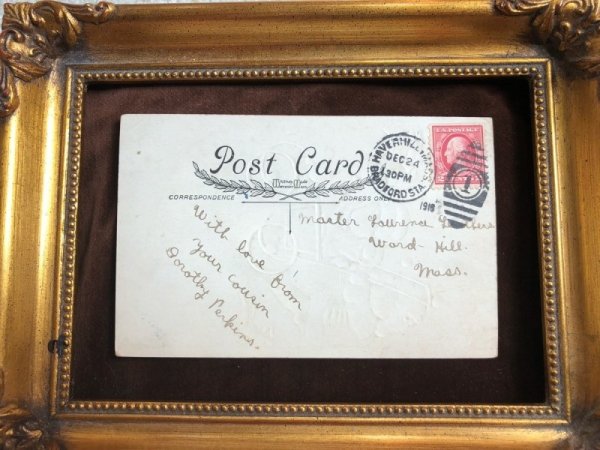 Post Card
CORRESPONDENCE
ADDRESS ONLY
HAVERHILL, MASS.
DEC 24
30PM
1916
BRADFORD STA.
U.S. POSTAGE
1
Master Lawrence
Ward Hill.
Mass.
With love from
Your cousin
Dorothy Perkins.